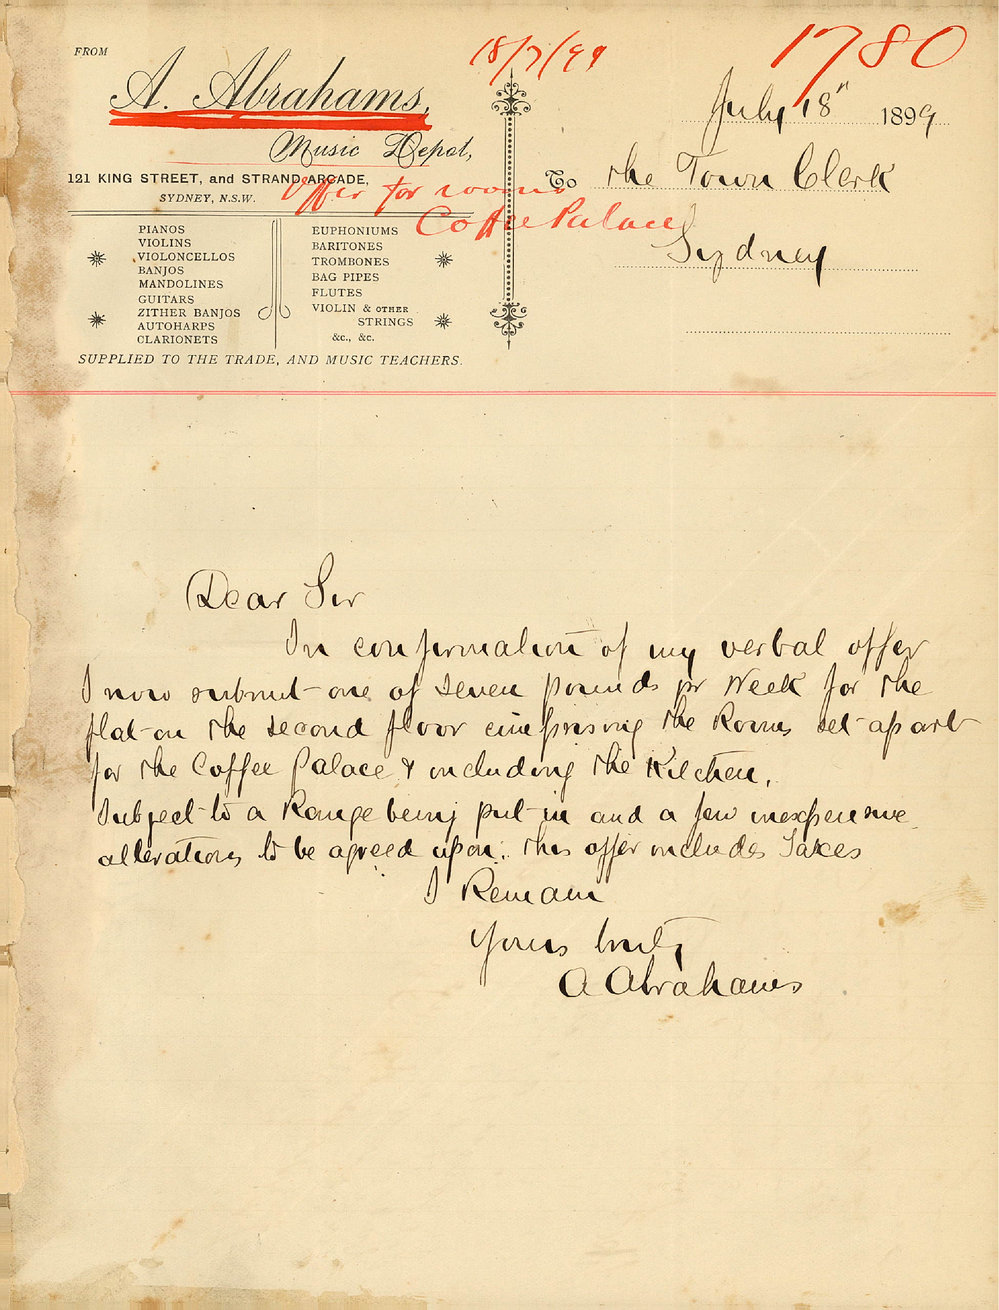 FROM
A. Abrahams,
Music Depot,
121 KING STREET, and STRAND ARCADE,
SYDNEY, N.S.W.
18/7/99
1780
Offer for rooms
Coffee Palace
July 18th 1899
To the Town Clerk
Sydney
PIANOS
VIOLINS
VIOLONCELLOS
BANJOS
MANDOLINES
GUITARS
ZITHER BANJOS
AUTOHARPS
CLARIONETS
EUPHONIUMS
BARITONES
TROMBONES
BAG PIPES
FLUTES
VIOLIN & OTHER
STRINGS
&c., &c.
SUPPLIED TO THE TRADE, AND MUSIC TEACHERS.
Dear Sir
In confirmation of my verbal offer
I now submit one of seven pounds pr Week for the
flat on the second floor comprising the Rooms set apart
for the Coffee Palace & including the Kitchen,
Subject to a Range being put in and a few inexpensive
alterations to be agreed upon. this offer includes Taxes
I Remain
Yours truly
A Abrahams